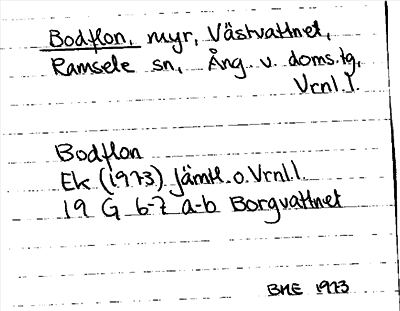 Bodflon, myr, Västvattnet,
Ramsele sn, Ång. v. doms.tg,
Vrnl.l.
Bodflon
Ek (1973) Jämtl. o. Vrnl.l.
19 G 6-7 a-b Borgvattnet
BME 1973